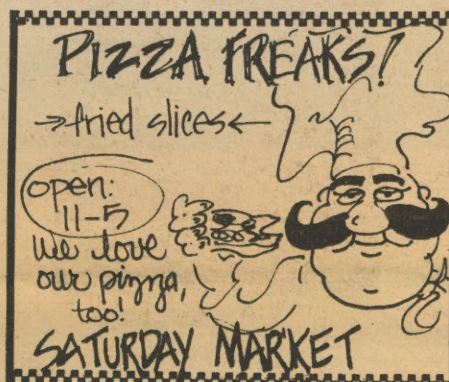 PIZZA FREAKS!
→fried slices←
open:
11-5
we love
our pizza,
too!
SATURDAY MARKET